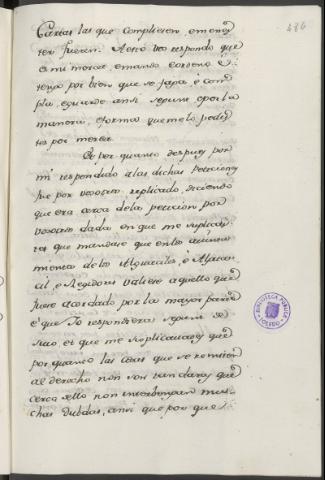 Cartas las que complieren, e mene=
ter fueren. A esto vos respondo que
es mi merced, e mando, e ordeno, e
tengo por bien que se faga, e com=
pla, e guarde ansi segunt, e por la
manera, e forma que me lo pedis=
tes por merced.
Et por quanto despues por
mi respondido a las dichas Peticiones
fue por vosotros replicado, diciendo
que era cerca de la peticion por
vosotros dada en que me suplicas=
tes que mandase que en los
mientos de los Alguaciles, e
e Regidores valiese aquello que
fuese acordado por la mayor parte
e que Yo respondiera segunt de
suso, et que me suplicavades que
por quanto las cosas que se remiten
al derecho non son tan claras que
cerca dello non intervengan mu=
chas dubdas, ansi que por que
486
BIBLIOTECA PUBLICA
TOLEDO